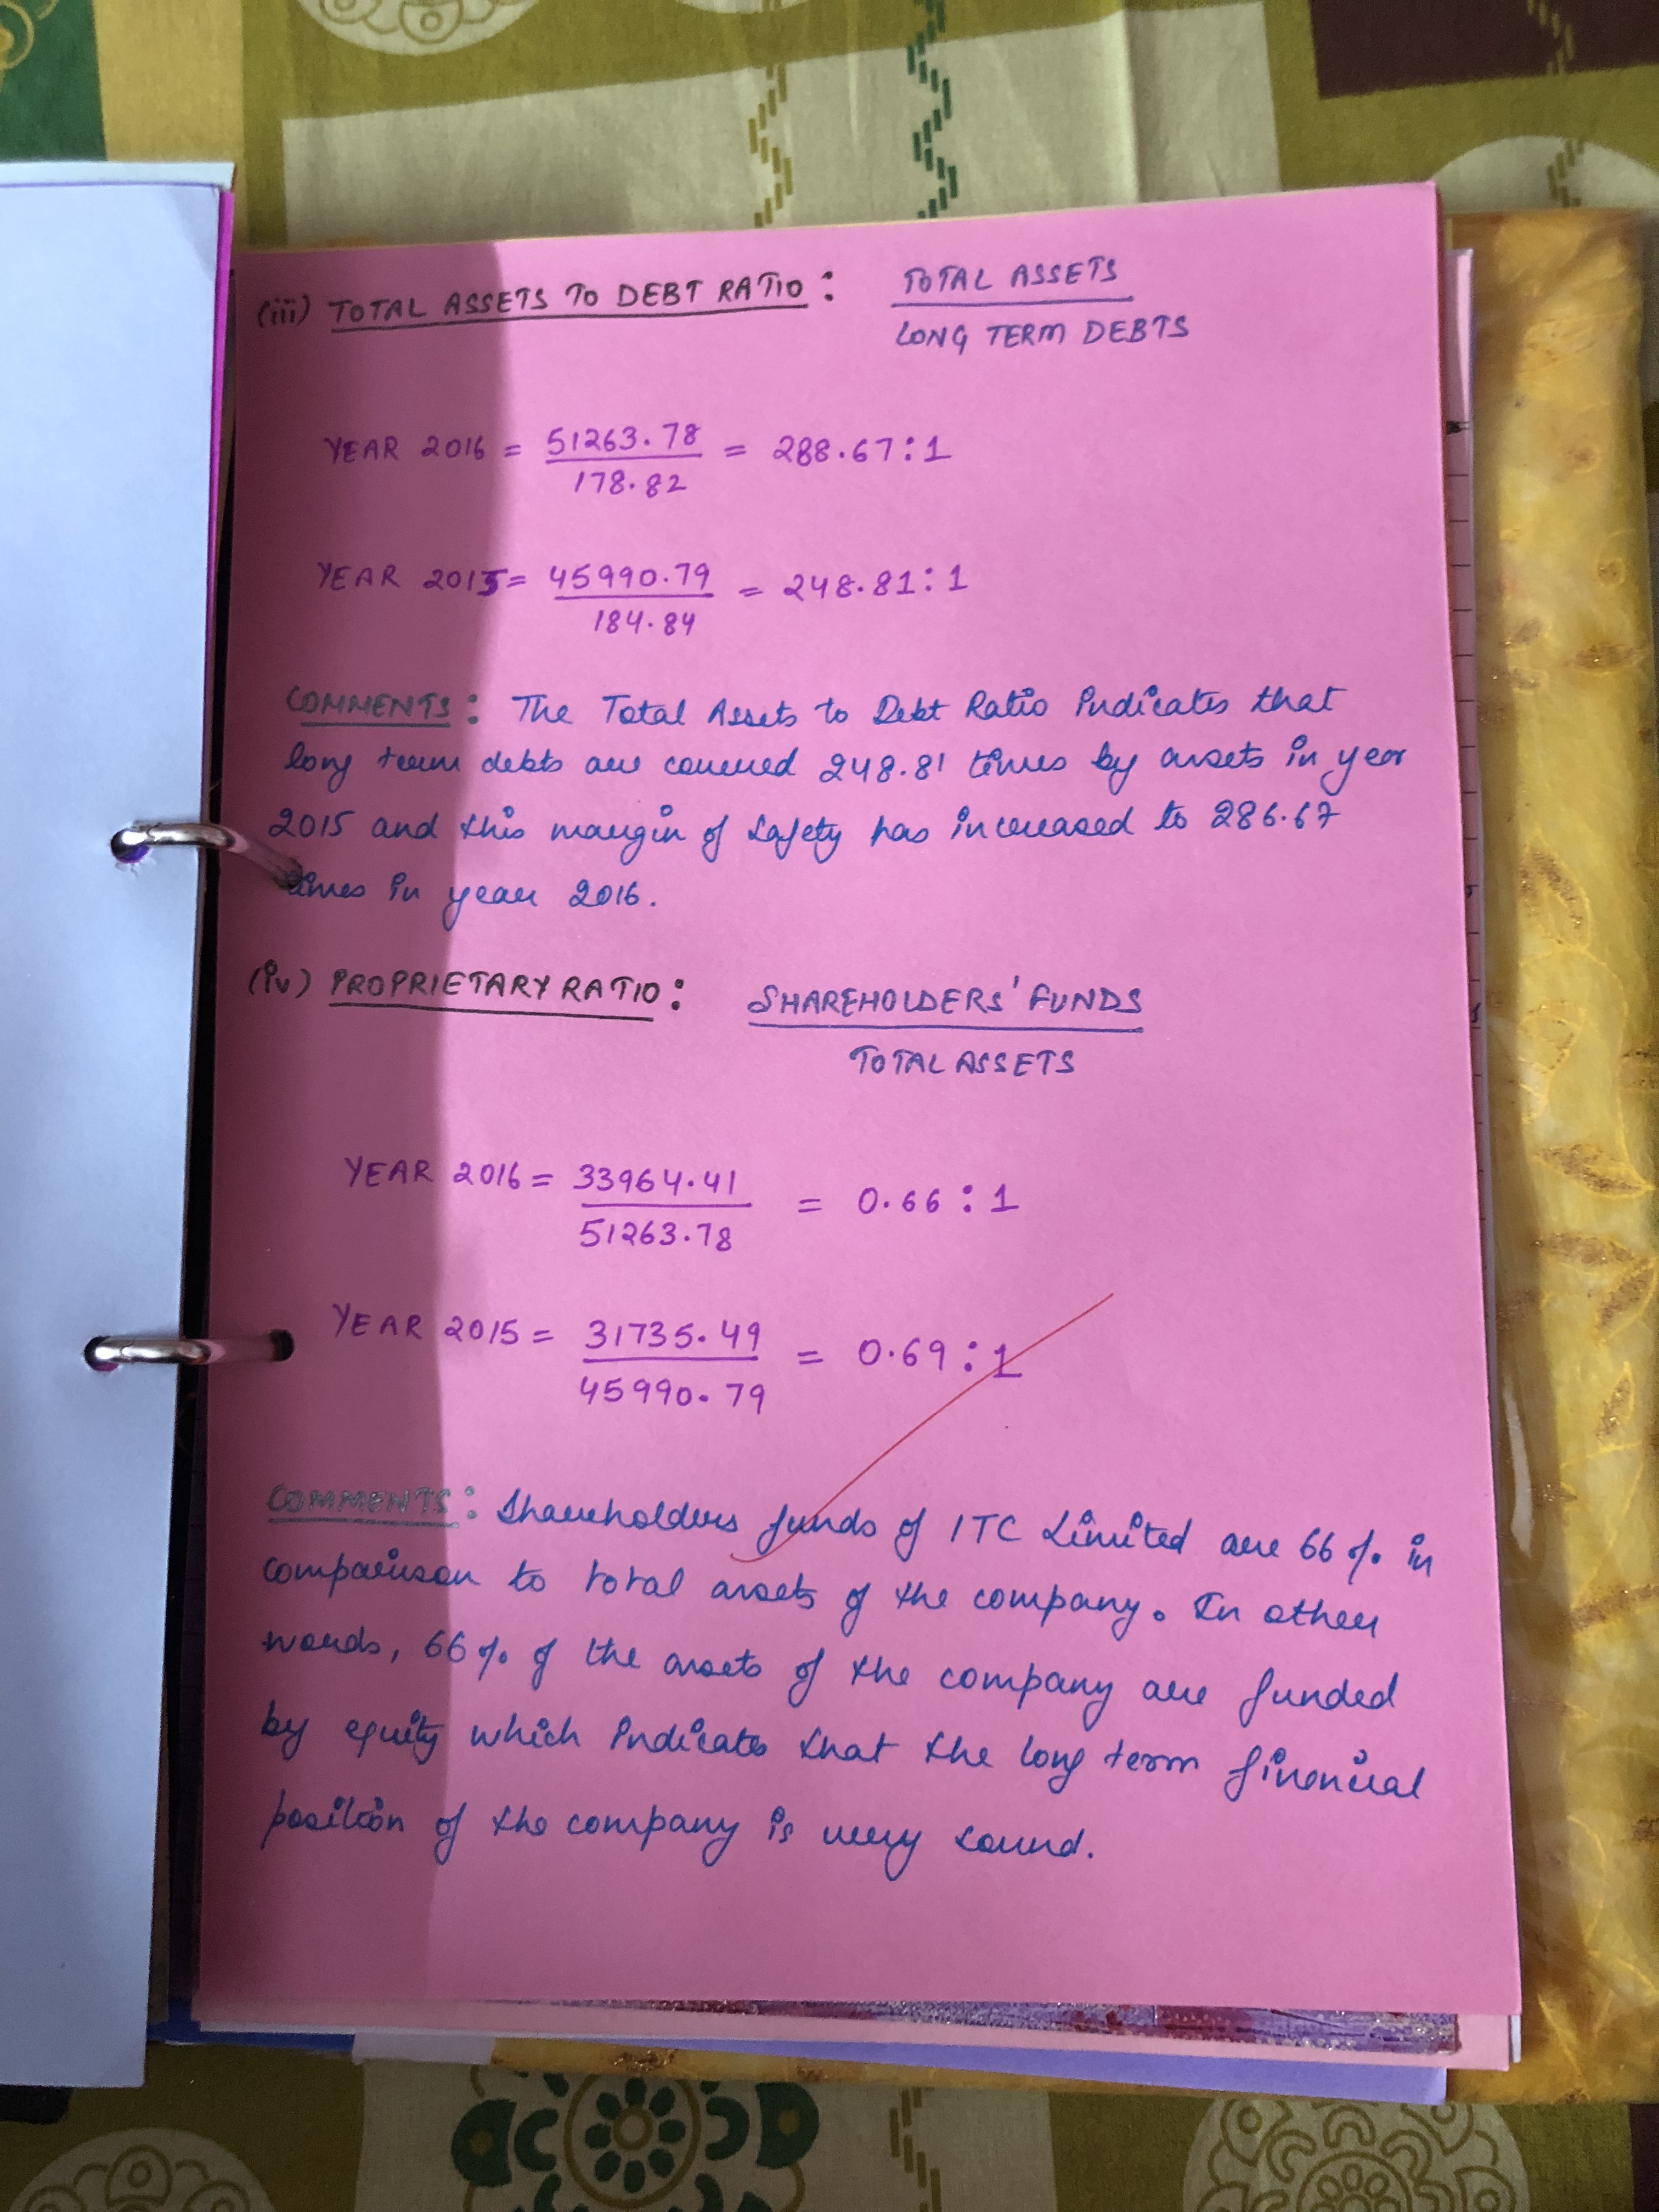 (iii) TOTAL ASSETS TO DEBT RATIO : TOTAL ASSETS
LONG TERM DEBTS
YEAR 2016 = 51263.78 = 288.67:1
178.82
YEAR 2015 = 45990.79 = 248.81:1
184.84
COMMENTS: The Total Assets to Debt Ratio indicates that
long term debts are covered 248.81 times by assets in year
2015 and this margin of safety has increased to 286.67
times in year 2016.
(iv) PROPRIETARY RATIO : SHAREHOLDERS' FUNDS
TOTAL ASSETS
YEAR 2016 = 33964.41 = 0.66 : 1
51263.78
YEAR 2015 = 31735.49 = 0.69 : 1
45990.79
COMMENTS: Shareholders funds of ITC Limited are 66% in
comparison to total assets of the company. In other
words, 66% of the assets of the company are funded
by equity which indicates that the long term financial
position of the company is very sound.